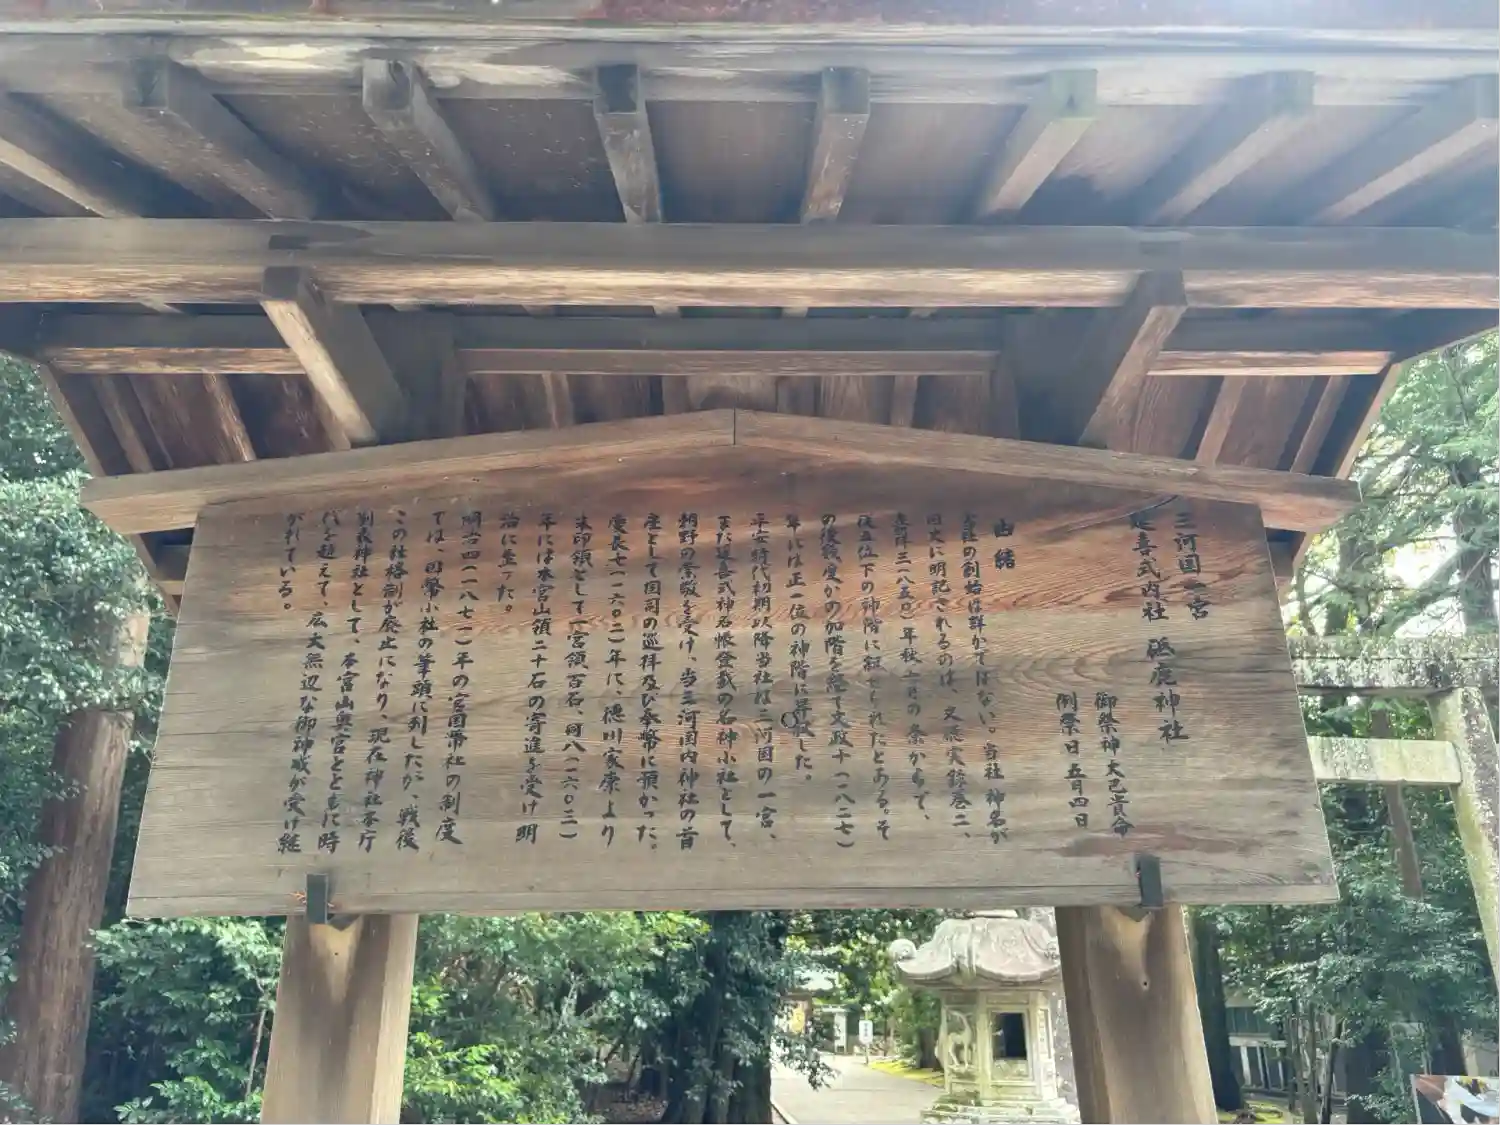 三河国一宮
延喜式内社 砥鹿神社
御祭神 大己貴命
例祭日 五月四日
由緒
当社の創始は詳かではない。当社神名が
国史に明記されるのは、文徳実録巻二、
嘉祥三(八五〇)年秋七月の条からで、
従五位下の神階に叙せられたとある。そ
の後数度かの加階を経て文政十(一八二七)
年には正一位の神階に昇叙した。
平安時代初期以降当社は三河国の一宮、
また延喜式神名帳登載の名神小社として、
朝野の崇敬を受け、当三河国内神社の首
座として国司の巡拝及び奉幣に預かった。
慶長七(一六〇二)年に、徳川家康より
朱印領として一宮領百石、同八(一六〇三)
年には本宮山領二十石の寄進を受け明
治に至った。
明治四(一八七一)年の官国幣社の制度
では、国幣小社の筆頭に列したが、戦後
この社格制が廃止になり、現在神社本庁
別表神社として、本宮山奥宮とともに時
代を超えて、広大無辺な御神威が受け継
がれている。